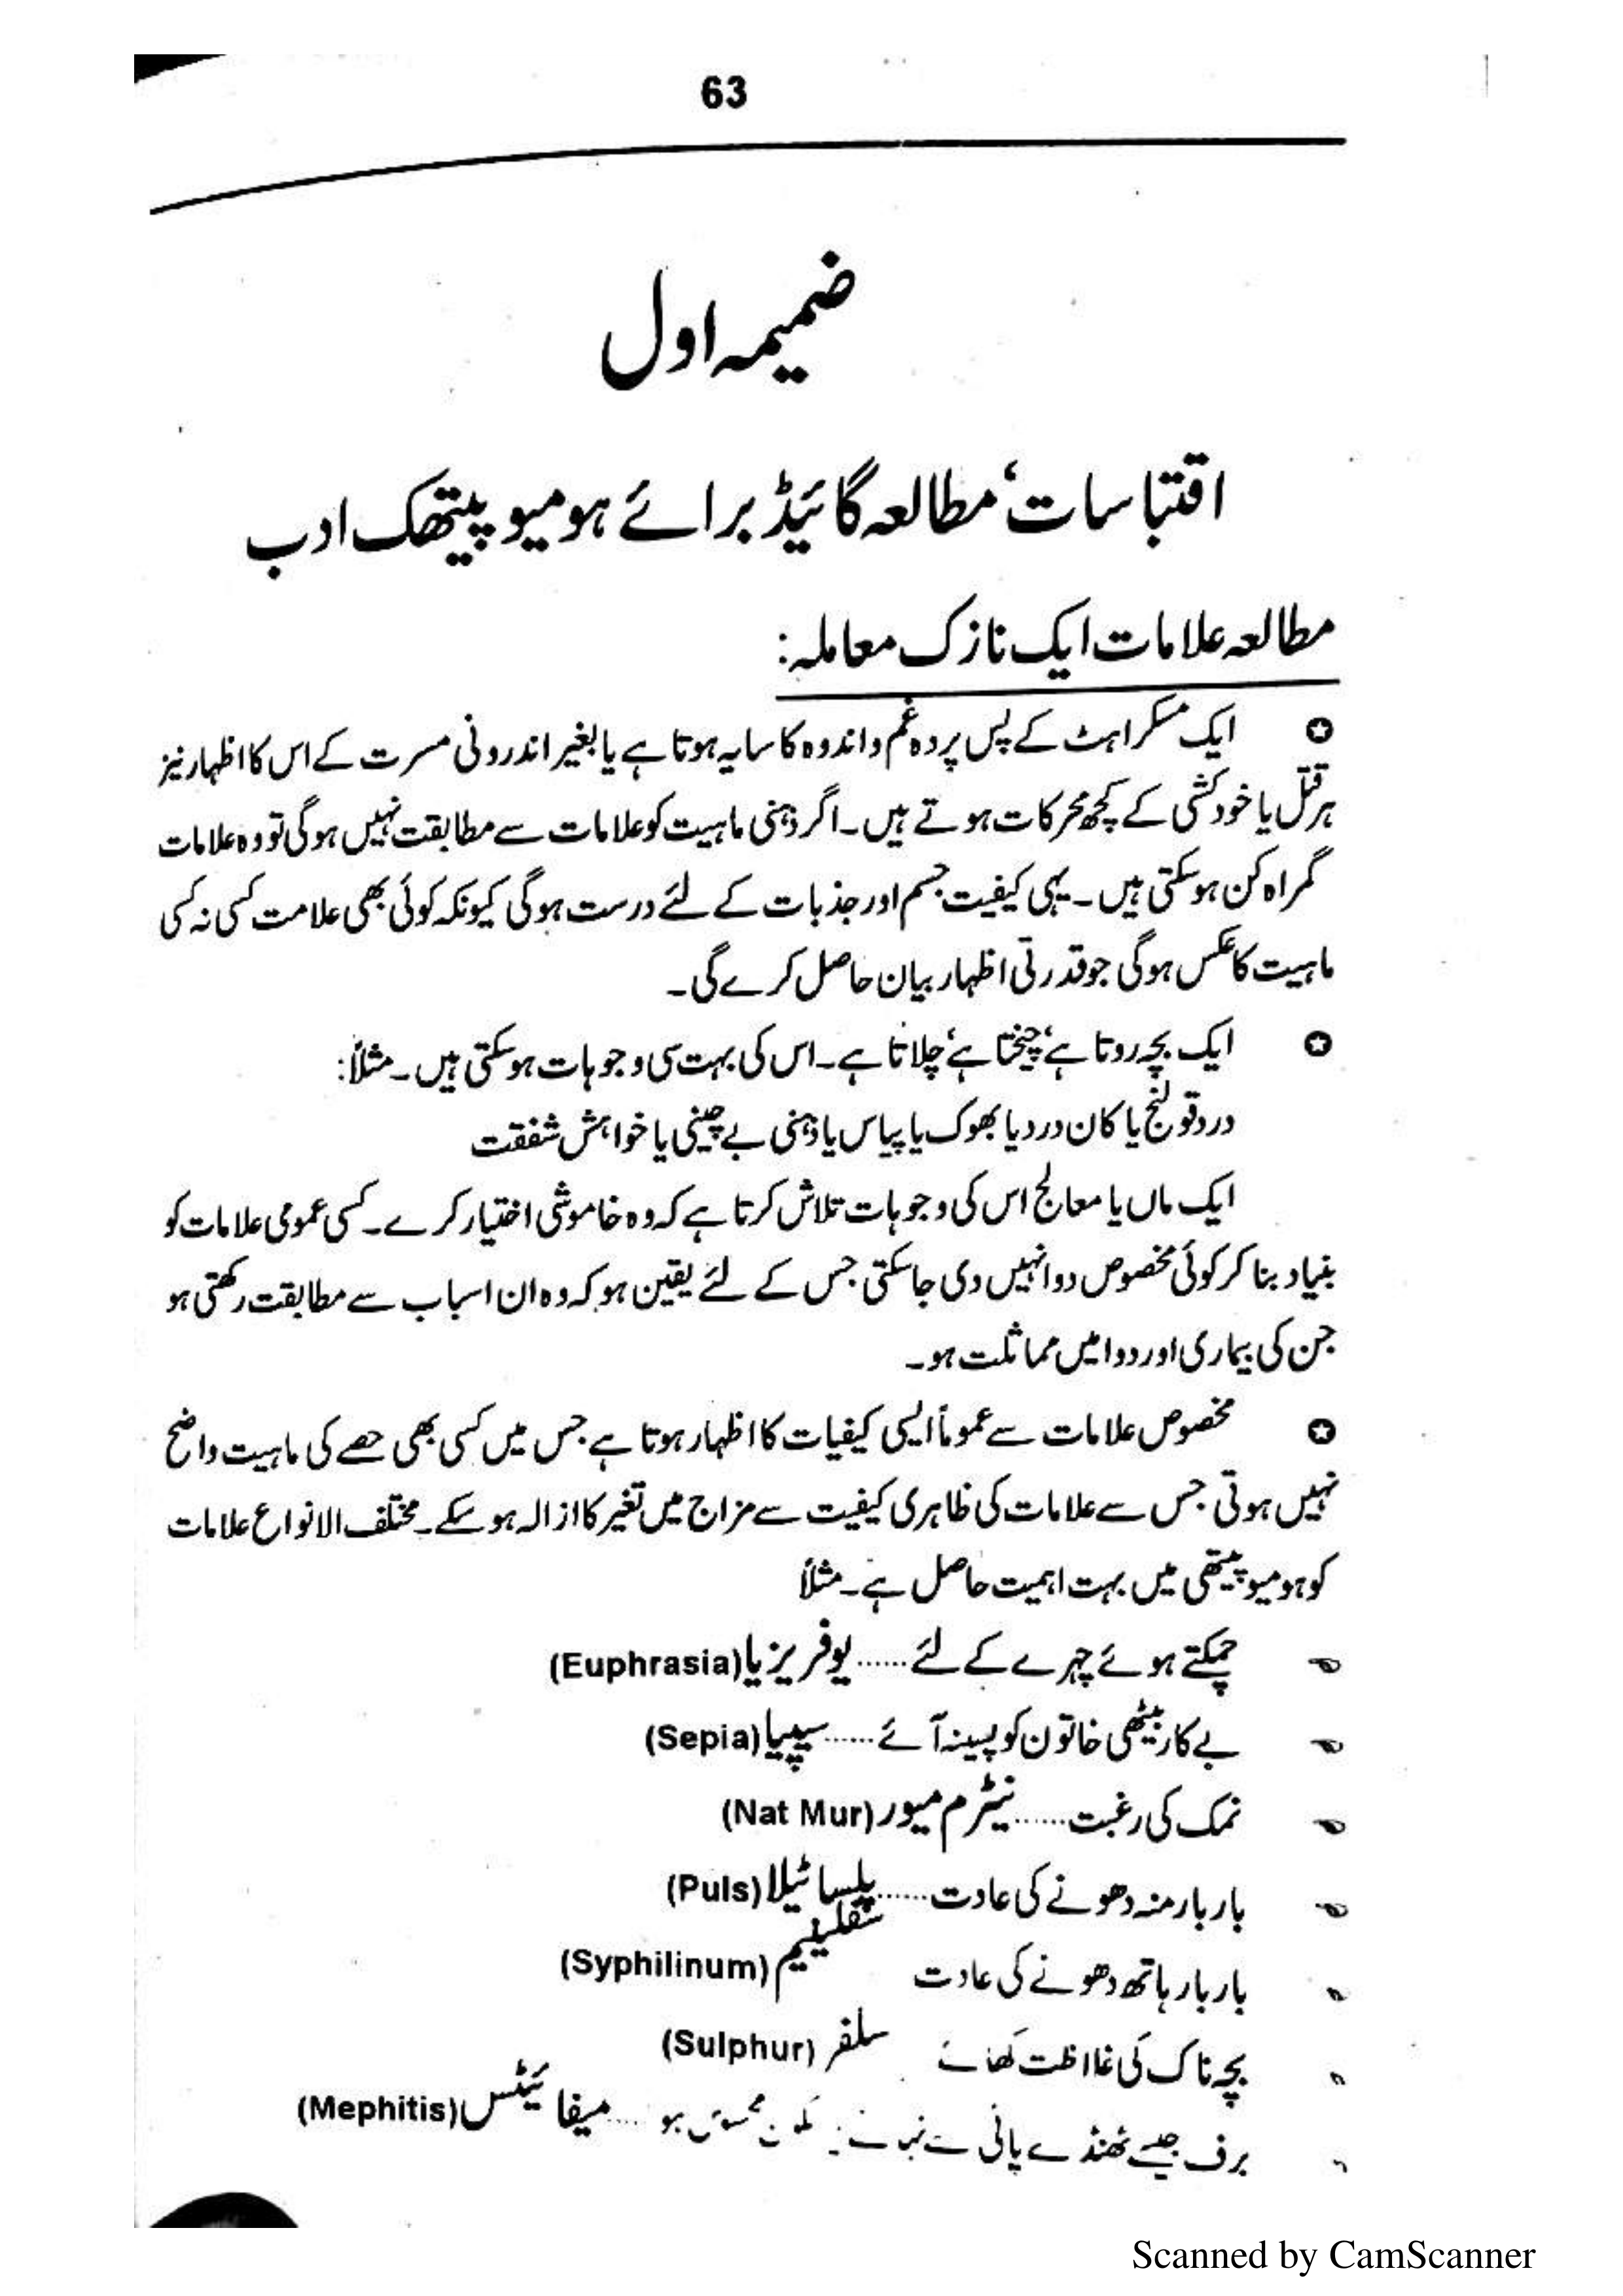 63
ضمیمہ اول
اقتباسات، مطالعہ گائیڈ برائے ہومیو پیتھک ادب
مطالعہ علامات ایک نازک معاملہ:
✪ ایک مسکراہٹ کے پس پردہ غم و اندوہ کا سایہ ہوتا ہے یا بغیر اندرونی مسرت کے اس کا اظہار نیز
ہر قتل یا خودکشی کے کچھ محرکات ہوتے ہیں۔ اگر ذہنی ماہیت کو علامات سے مطابقت نہیں ہوگی تو وہ علامات
گمراہ کن ہوسکتی ہیں۔ یہی کیفیت جسم اور جذبات کے لئے درست ہوگی کیونکہ کوئی بھی علامت کسی نہ کسی
ماہیت کا عکس ہوگی جو قدرتی اظہار بیان حاصل کرے گی۔
✪ ایک بچہ روتا ہے، چیختا ہے، چلاتا ہے۔ اس کی بہت سی وجوہات ہوسکتی ہیں۔ مثلاً:
درد قولنج یا کان درد یا بھوک یا پیاس یا ذہنی بے چینی یا خواہش شفقت
ایک ماں یا معالج اس کی وجوہات تلاش کرتا ہے کہ وہ خاموشی اختیار کرے۔ کسی عمومی علامات کو
بنیاد بنا کر کوئی مخصوص دوا نہیں دی جاسکتی جس کے لئے یقین ہو کہ وہ ان اسباب سے مطابقت رکھتی ہو
جن کی بیماری اور دوا میں مماثلت ہو۔
✪ مخصوص علامات سے عموماً ایسی کیفیات کا اظہار ہوتا ہے جس میں کسی بھی حصے کی ماہیت واضح
نہیں ہوتی جس سے علامات کی ظاہری کیفیت سے مزاج میں تغیر کا ازالہ ہوسکے۔ مختلف الانواع علامات
کو ہومیو پیتھی میں بہت اہمیت حاصل ہے۔ مثلاً
چمکتے ہوئے چہرے کے لئے ...... یوفریزیا (Euphrasia)
بے کار بیٹھی خاتون کو پسینہ آئے ...... سیپیا (Sepia)
نمک کی رغبت ...... نیٹرم میور (Nat Mur)
بار بار منہ دھونے کی عادت ...... پلساٹیلا (Puls)
بار بار ہاتھ دھونے کی عادت سفلینیم (Syphilinum)
بچہ ناک کی غلاظت کھائے سلفر (Sulphur)
برف جیسے ٹھنڈے پانی سے نہانے محسوس ہو ..... میفائیٹس (Mephitis)
Scanned by CamScanner